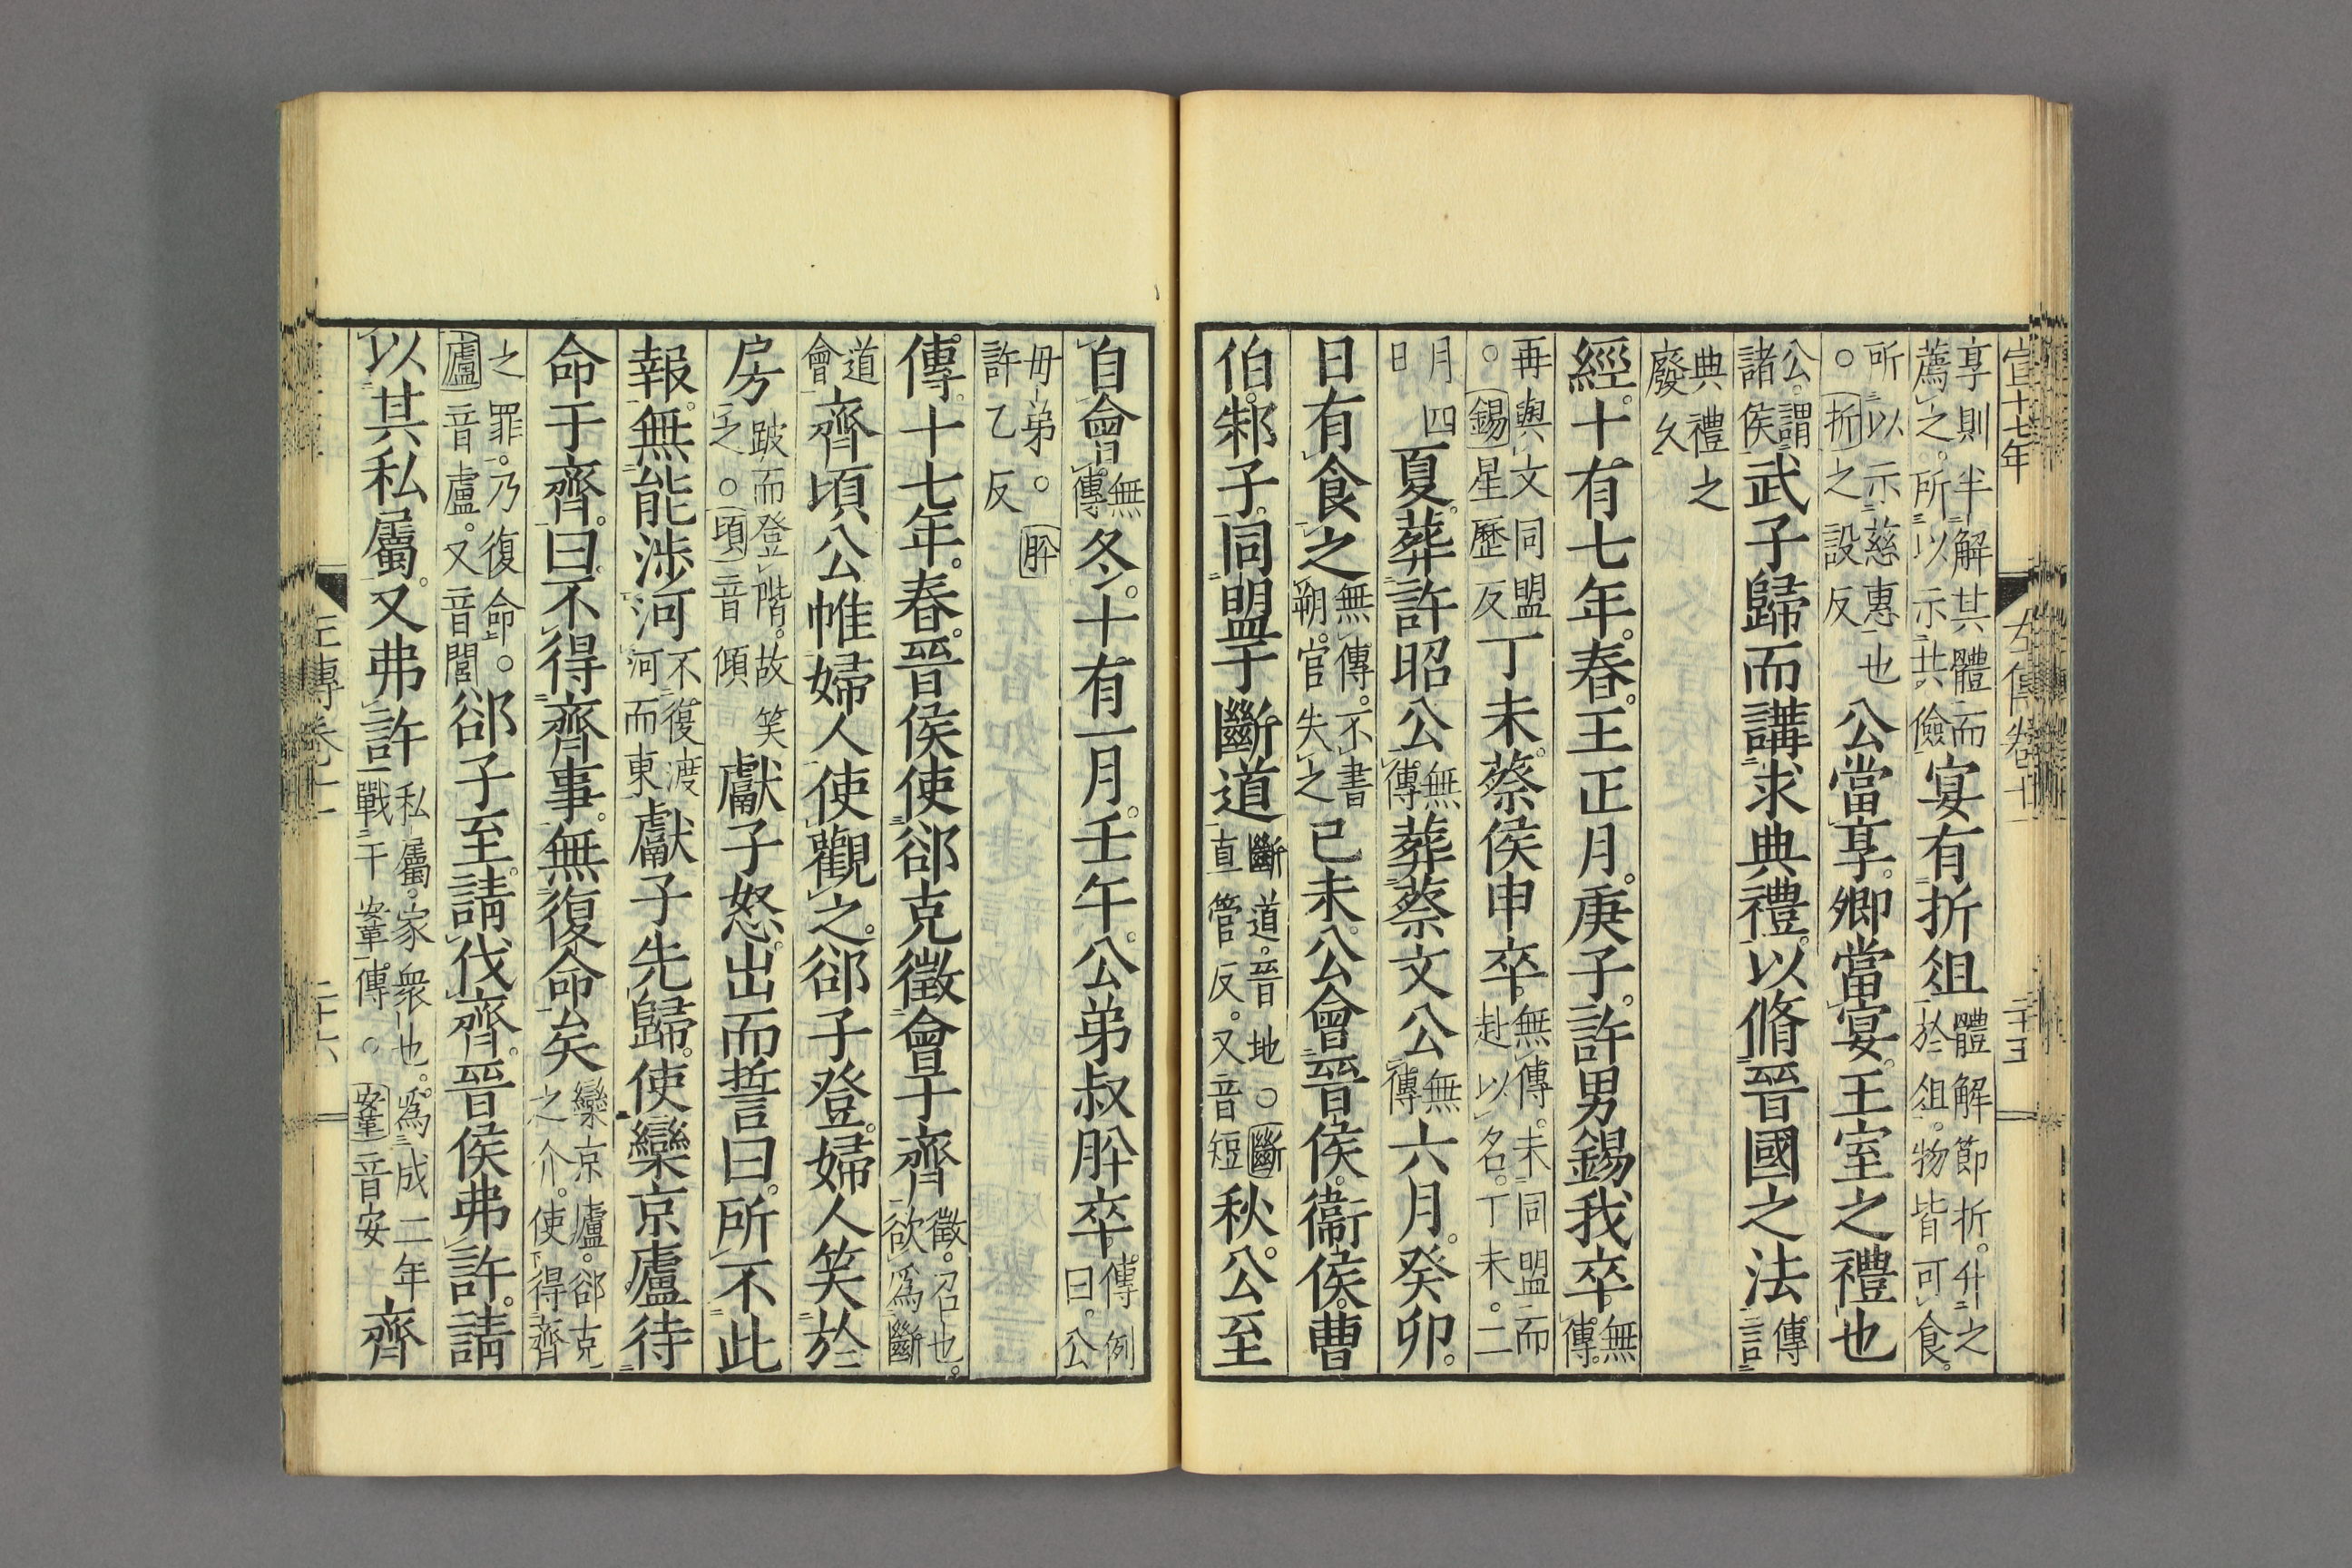 宣十七年　左傳卷十一　二十五
享則半解其體而薦之。所以示共儉宴有折俎體解節折。升之於俎。物皆可食。
所以示慈惠也○折之設反公當享。卿當宴。王室之禮也
公。謂諸侯武子歸而講求典禮。以脩晉國之法傳言
典禮之廢久
經。十有七年。春。王正月。庚子。許男錫我卒。無傳。
再與文同盟○錫星歷反丁未。蔡侯申卒。無傳。未同盟而赴以名。丁未。二
月四日夏。葬許昭公。無傳葬蔡文公無傳六月。癸卯。
日有食之無傳。不書朔。官失之己未。公會晉侯。衞侯。曹
伯。邾子。同盟于斷道斷道。晉地○斷直管反。又音短秋。公至
自會。無傳冬。十有一月。壬午。公弟叔肸卒。傳例曰。公
母弟。○肸許乙反
傳。十七年。春。晉侯使郤克徵會于齊徵。召也。欲爲斷
道會齊頃公帷婦人使觀之。郤子登。婦人笑於
房跛而登階。故笑之。○頃音傾獻子怒。出而誓曰。所不此
報。無能涉河不復渡河而東獻子先歸。使欒京廬待
命于齊。曰。不得齊事。無復命矣欒京廬。郤克之介。使得齊
之罪。乃復命。○廬音盧。又音閭郤子至。請伐齊。晉侯弗許。請
以其私屬。又弗許私屬。家衆也。爲成二年戰于鞌傳。○鞌音安齊